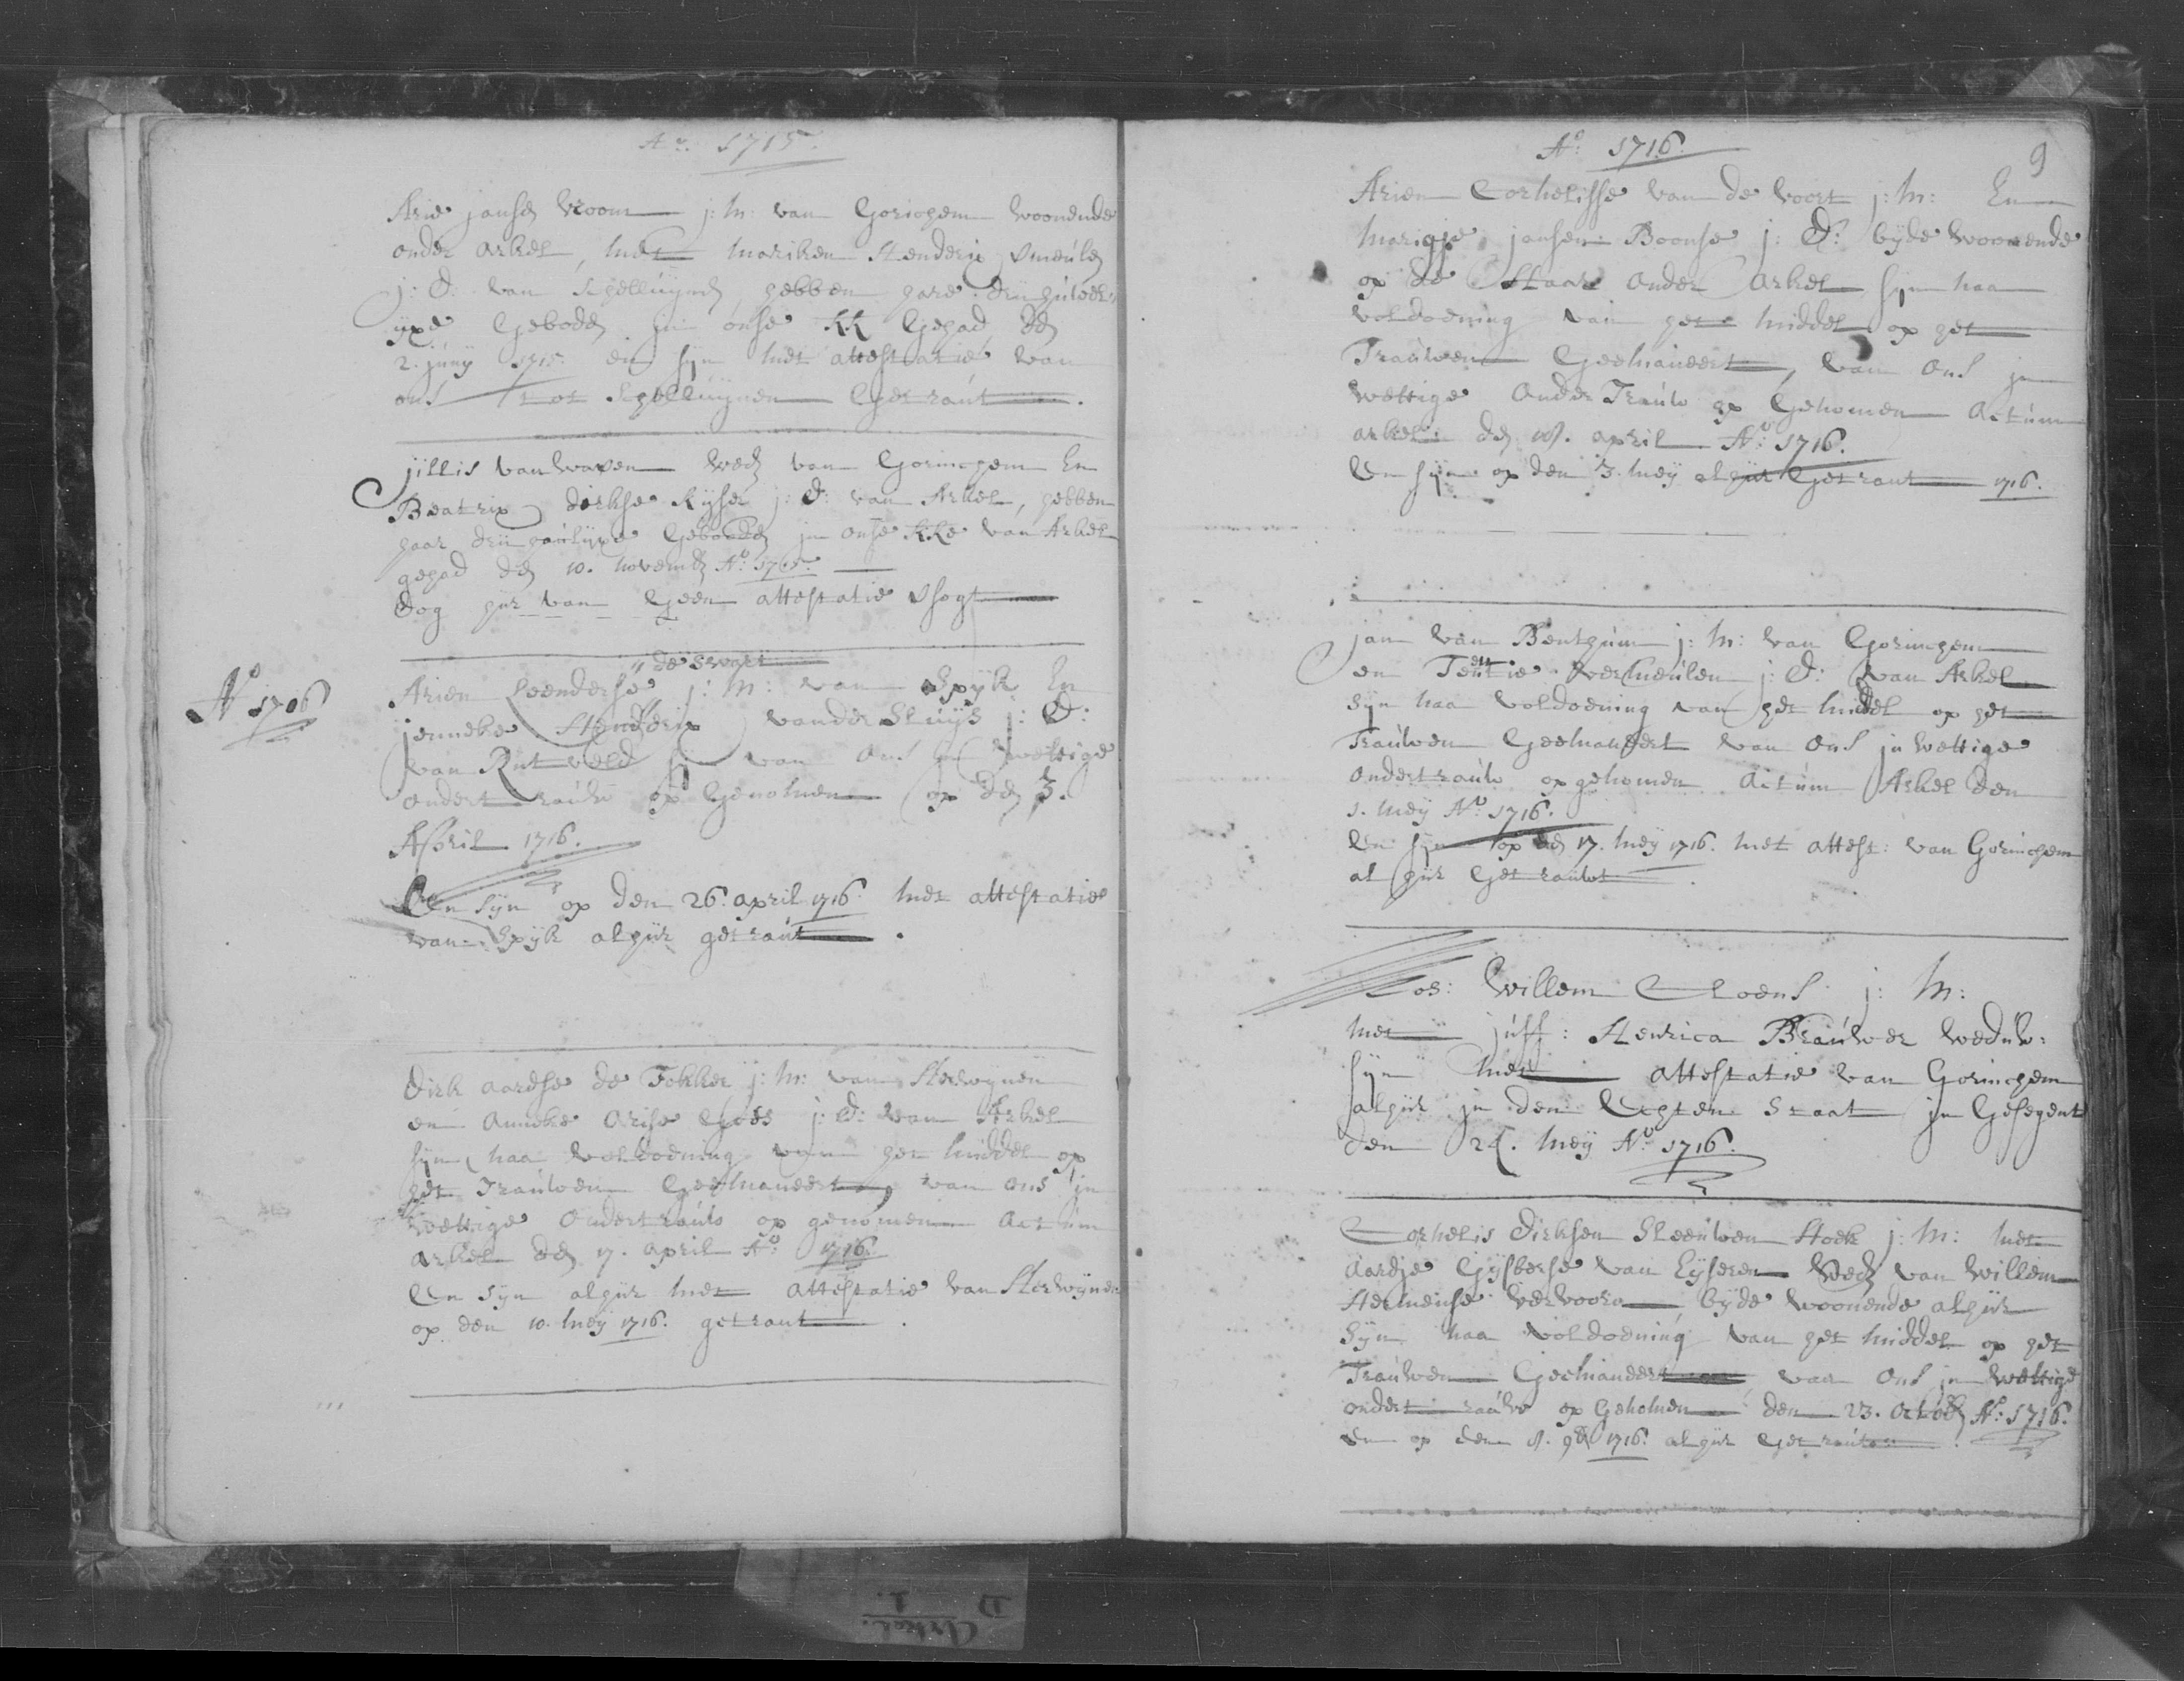 Ao. 1715.
Arie jansen Vroom j: m: van Gorichem woonende
onder Arkel, met mariken Hendrix Vmeulen
j: d: van Schelluynen hebben hare drij huwel-
ijxe Geboden in onse KK Gehad den
2. juny 1715. en syn met attestatie van
ons tot Schelluynen Getraut.
jillis van waxen wedr van Gorinchem En
Beatrix dirkse Kyser j: d: van Arkel, hebben
haar drij hauwlyxe Gebooden in onse KKe van Arkel
gehad den 10. novemb Ao: 1715.
dog hier van Geen attestatie Vsogt
Ao 1716
"de swart
Arien Leenderse j: m: van Spyk En
jenneke Hendrix vander Sluys j: d:
van Rutveld syn van Ons in wettige
ondertrauw op Genomen op den 3.
April 1716.
En syn op den 26. april 1716. met attestatie
van Spyk alhier getraut.
Dirk aardse de Fokker j: m: van Herwynen
en Anneke Arise Goes j: d: van Arkel
syn, naa voldoening van het middel op
het Trauwen Geemaneert, van ons in
wettige Ondertrauw op genomen Actum
Arkel den 17. april Ao: 1716.
En syn alhier met Attestatie van Herwynen
op den 10. mey 1716. getraut.
Ao: 1716.
9
Arien Cornelisse van de voort j: m: En
marigje jansen Boonse j: d: byde woonende
op de Haar onder Arkel syn naa
voldoening van het middel op het
Trauwen Geemaneert, van ons in
wettige OnderTrauw op Genomen Actum
arkel den 18. april Ao: 1716.
En syn op den 3. mey alhier Getraut 1716.
jan van Benthum j: m: van Gorinchem
en Teuntie Vermeulen j: d: van Arkel
syn naa voldoening van het middel op het
Trauwen Geemaneert van ons in wettige
ondertrauw opgenomen. Actum Arkel den
1. mey Ao: 1716.
En syn op den 17. mey 1716. met attest: van Gorinchem
alhier Getrauwt.
os: Willem Cloens j: m:
met juff: Henrica Brauwer weduw:
syn met attestatie van Gorinchem
alhier in den Egten Staat in Gesegent
den 24. mey Ao 1716.
Cornelis Dirksen Sleeuwen Hoek j: m: met
Aardje Gysberse van Eyseren wedr van Willem
Hermense Vervoorn byde woonende alhier
Syn naa voldoening van het middel op het
Trauwen Geemaneert van Ons in wettige
ondertrauw op Genomen den 23. Octob Ao: 1716.
en op den 8. 9br 1716. alhier Getraut.
Arkel.
D 1.